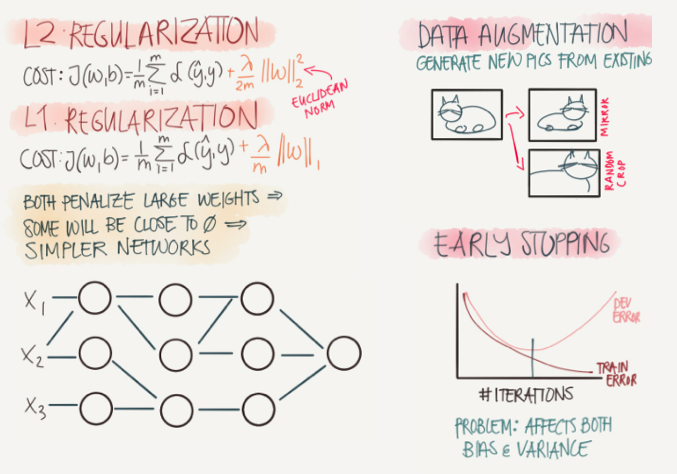 L2-REGULARIZATION
COST: J(w,b)=1/m Σ_{i=1}^{m} L(ŷ,y) + λ/2m ||w||₂²
EUCLIDEAN
NORM
L1-REGULARIZATION
COST: J(w,b)= 1/m Σ_{i=1}^{m} L(ŷ,y) + λ/m ||w||₁
BOTH PENALIZE LARGE WEIGHTS ⇒
SOME WILL BE CLOSE TO 0 ⇒
SIMPLER NETWORKS
X₁
X₂
X₃
DATA AUGMENTATION
GENERATE NEW PICS FROM EXISTING
MIRROR
RANDOM
CROP
EARLY STOPPING
DEV
ERROR
TRAIN
ERROR
#ITERATIONS
PROBLEM: AFFECTS BOTH
BIAS & VARIANCE